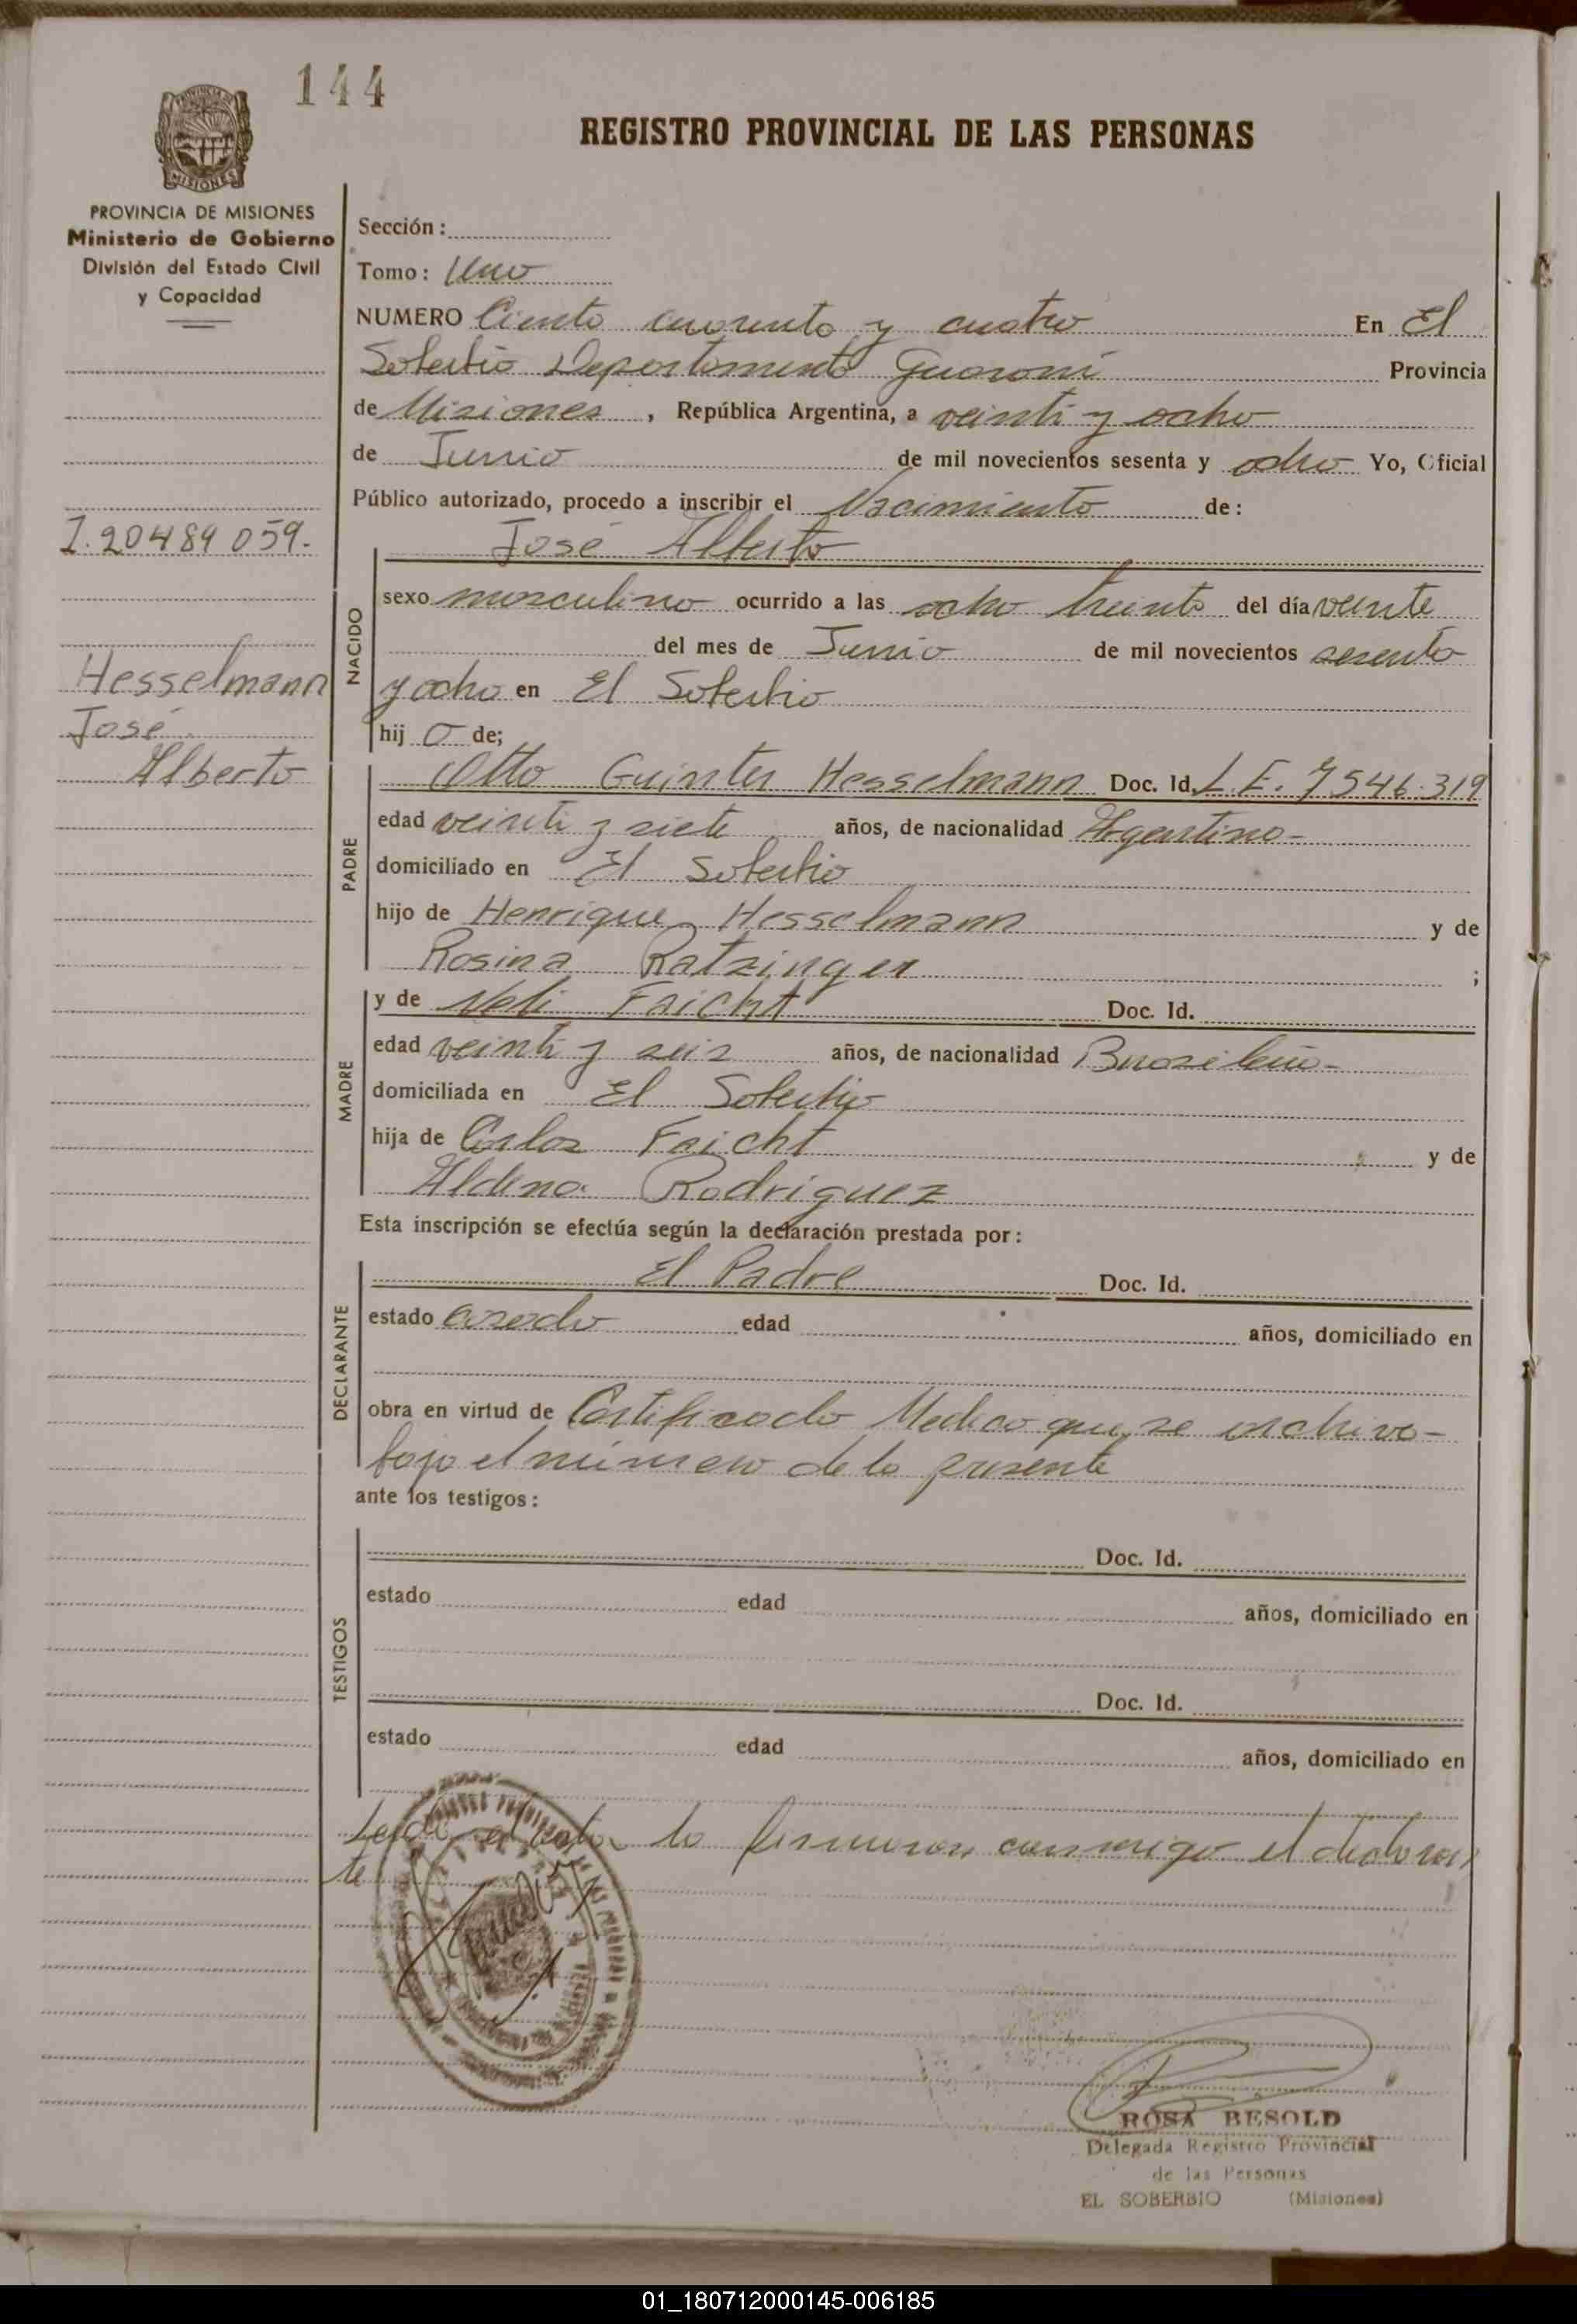 144
REGISTRO PROVINCIAL DE LAS PERSONAS
MISIONES
PROVINCIA DE MISIONES
Ministerio de Gobierno
División del Estado Civil
y Capacidad
I. 20484059.
Hesselmann
José
Alberto
Sección:
Tomo: Uno
NUMERO Ciento cuarenta y cuatro En El
Soberbio Departamento Guaraní Provincia
de Misiones, República Argentina, a veinti y ocho
de Junio de mil novecientos sesenta y ocho Yo, Oficial
Público autorizado, procedo a inscribir el Nacimiento de:
José Alberto
NACIDO
sexo masculino ocurrido a las ocho treinta del día veinte
del mes de Junio de mil novecientos sesenta
y ocho en El Soberbio
hij o de;
PADRE
Otto Guinter Hesselmann Doc. Id. L. E. 7546.319
edad veinti y siete años, de nacionalidad Argentino-
domiciliado en El Soberbio
hijo de Henrique Hesselmann y de
Rosina Ratzinger ;
MADRE
y de Neli Faicht Doc. Id.
edad veinti y seis años, de nacionalidad Brasileña-
domiciliada en El Soberbio
hija de Carlos Faicht y de
Aldina Rodriguez
Esta inscripción se efectúa según la declaración prestada por:
DECLARANTE
El Padre Doc. Id.
estado casado edad años, domiciliado en
obra en virtud de Certificado Medico que se archiva-
bajo el número de la presente
ante los testigos:
TESTIGOS
Doc. Id.
estado edad años, domiciliado en
Doc. Id.
estado edad años, domiciliado en
Leída el acta la firman conmigo el declaran
te
ROSA BESOLD
Delegada Registro Provincial
de las Personas
EL SOBERBIO (Misiones)
01_180712000145-006185